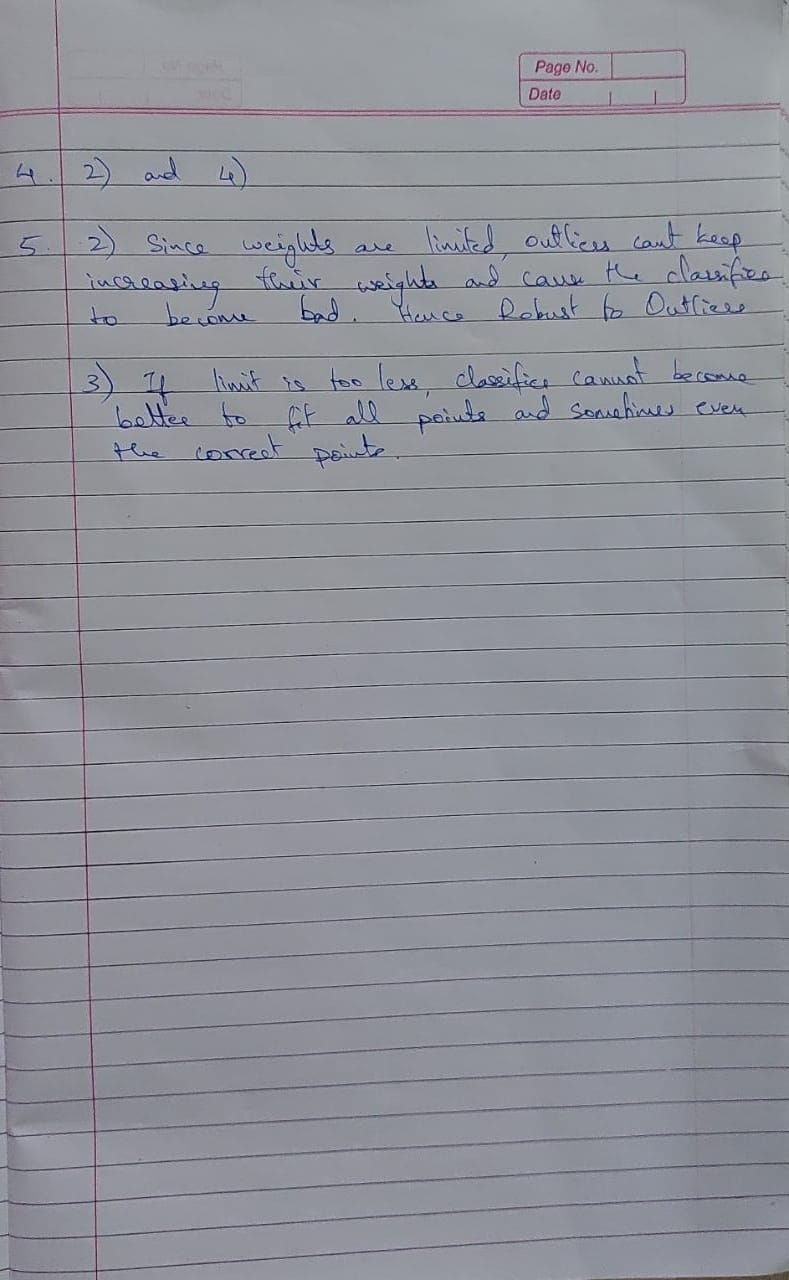 Page No.
Date
4. 2) and 4)
5. 2) Since weights are limited, outliers cant keep
increasing their weights and cause the classifier
to become bad. Hence Robust to Outliers
3) If limit is too less, classifier cannot become
better to fit all points and sometimes even
the correct points.